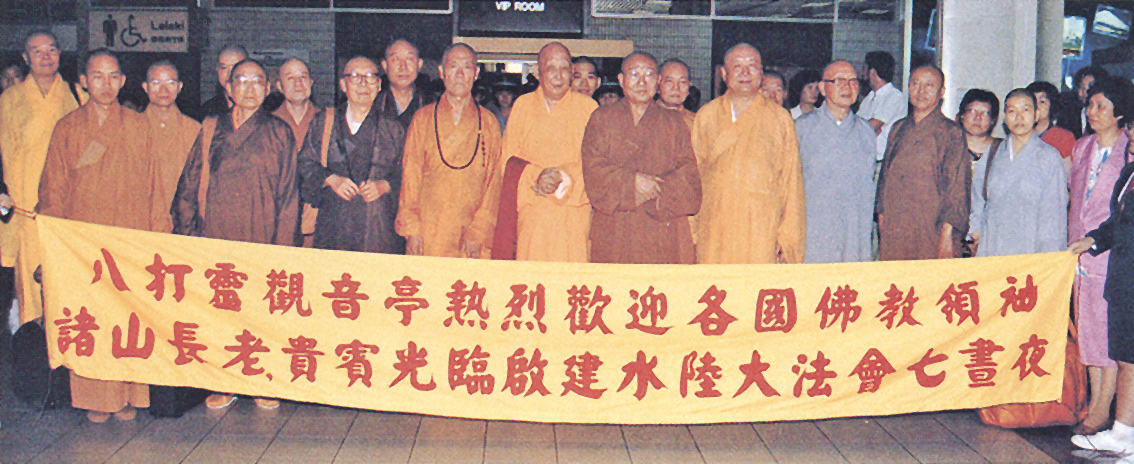 VIP ROOM
Lelaki
八打靈觀音亭熱烈歡迎各國佛教領袖
諸山長老、貴賓光臨啟建水陸大法會七晝夜